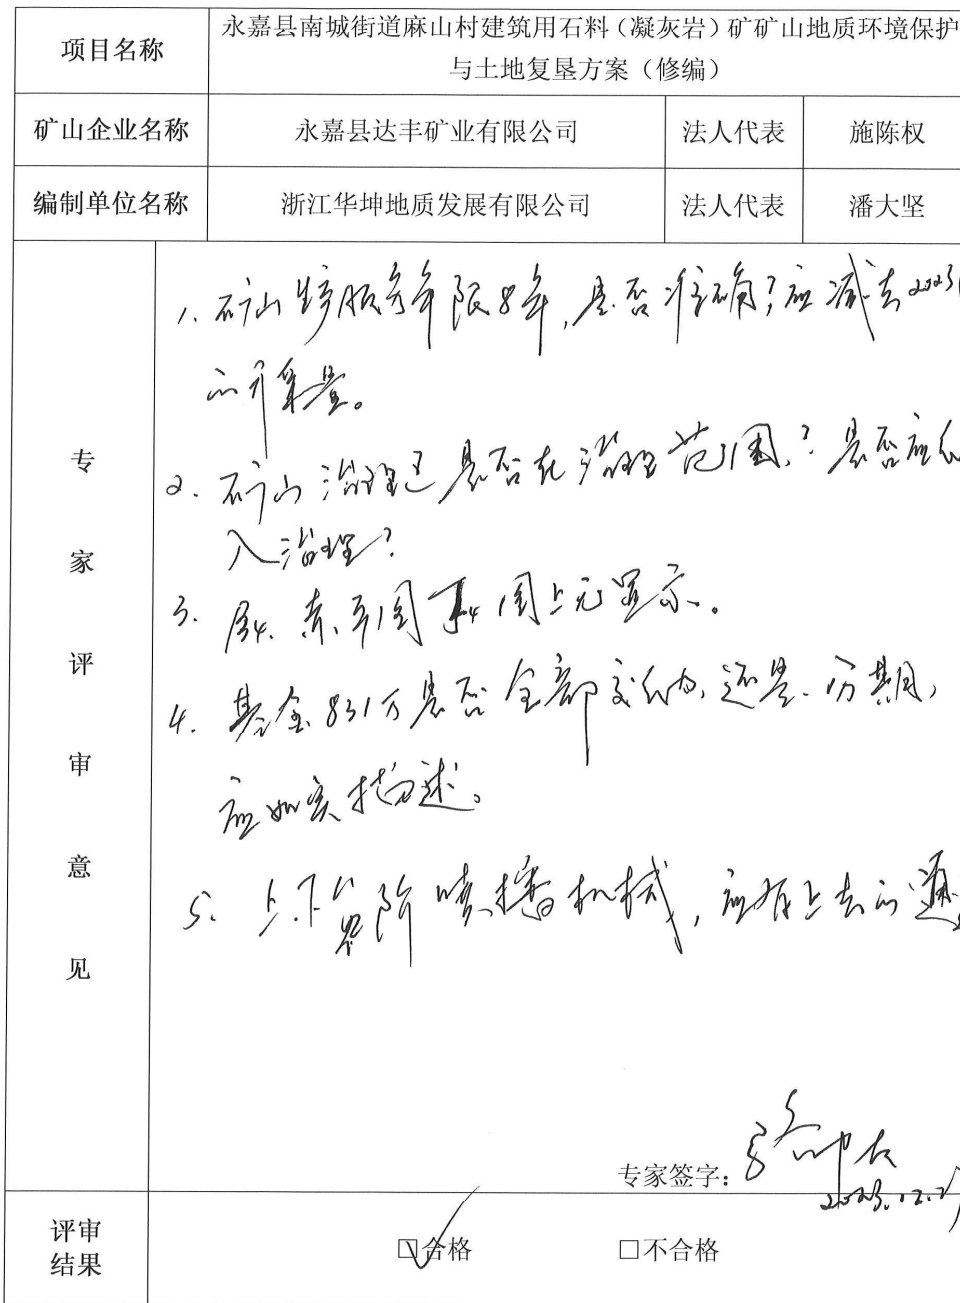 项目名称
永嘉县南城街道麻山村建筑用石料（凝灰岩）矿矿山地质环境保护
与土地复垦方案（修编）
矿山企业名称 永嘉县达丰矿业有限公司 法人代表 施陈权
编制单位名称 浙江华坤地质发展有限公司 法人代表 潘大坚
专家评审意见
1. 矿山生产服务年限8年，是否准确？应减去2023
的开采量。
2. 矿山治理 是否在治理范围？是否应纳
入治理？
3. 图上无显示。
4. 基金831万是否全部交纳，还是分期，
应如实描述。
5. 上下台阶喷播机械，应有上去的通
专家签字：
2023.12.
评审
结果
☑合格 □不合格